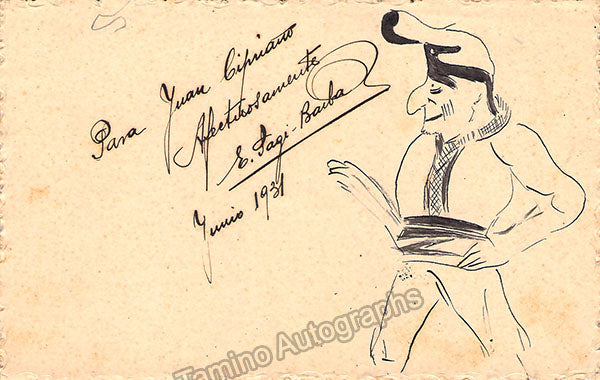 Para Juan Cipriano
Afectuosamente
E. Sagi-Barba
Junio 1931
Tamino Autographs